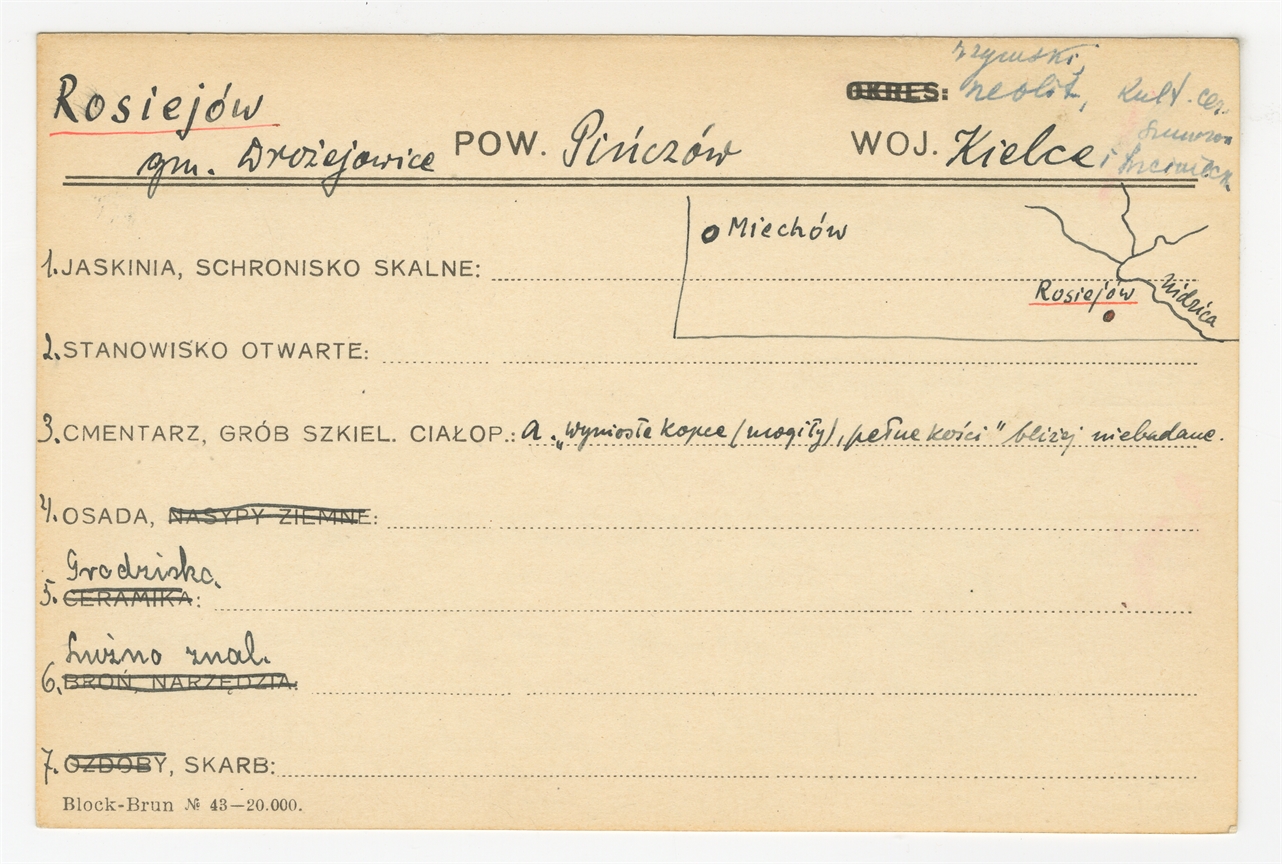 rzymski,
Rosiejów OKRES: neolit, kult. cer.
sznurow
gm. Drożejowice POW. Pińczów WOJ. Kielce i
Miechów
1. JASKINIA, SCHRONISKO SKALNE:
Rosiejów Nidzica
2. STANOWISKO OTWARTE:
3. CMENTARZ, GRÓB SZKIEL. CIAŁOP.: a. „wyniosłe kopce (mogiły), pełne kości" bliżej niebadane.
4. OSADA, NASYPY ZIEMNE:
Grodzisko.
5. CERAMIKA:
Luźno znal.
6. BROŃ, NARZĘDZIA:
7. OZDOBY, SKARB:
Block-Brun № 43—20.000.